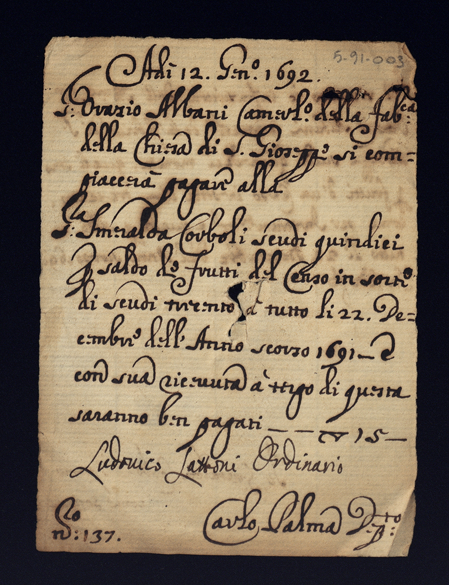 5-91-003
Adi 12. Genº. 1692.
Sʳ: Orazio Albani Camerlº. della fabᶜᵃ
della Chiesa di S. Gioseppe si com=
piacerà pagare alla
Sʳᵃ Smeralda Corboli scudi quindici
p saldo de frutti del Censo in sorte
di scudi trecento à tutto li 22. De=
cembre dell'Anno scorso 1691 — e
con sua ricevuta à tergo di questa
saranno ben pagati — — ▽ 15 —
Ludovico Lattoni Ordinario
Carlo Palma
nº: 137.